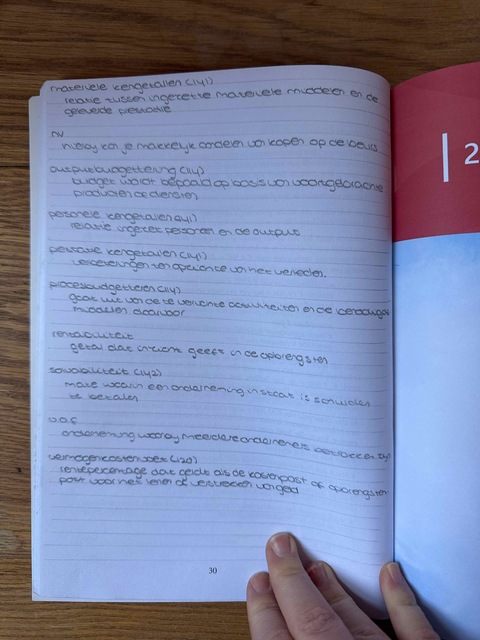 materiele kengetallen (141)
relatie tussen ingezette materiele middelen en de
geleverde prestatie
NV
hierbij kan je makkelijk aandelen van kopen op de beurs
outputbudgettering (114)
budget wordt bepaald op basis van voortgebrachte
producten of diensten
personele kengetallen (141)
relatie ingezet personeel en de output
prestatie kengetallen (141)
verbeteringen ten opzichte van het verleden.
procesbudgetteren (114)
gaat uit van de te verrichte activiteiten en de benodigde
middelen daarvoor
rentabiliteit
getal dat inzicht geeft in de opbrengsten
solvabiliteit (142)
mate waarin een onderneming in staat is schulden
te betalen
v.o.f
onderneming waarbij meerdere ondernemers betrokken zijn
vermogenskostenvoet (120)
rentepercentage dat geldt als de kostenpost of opbrengsten
post voor het lenen of verstrekken van geld
30
2